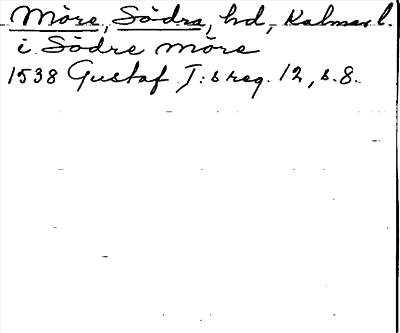 Möre, Södra, hd, Kalmar l.
i Södre möre
1538 Gustaf I:s reg. 12, s. 8.